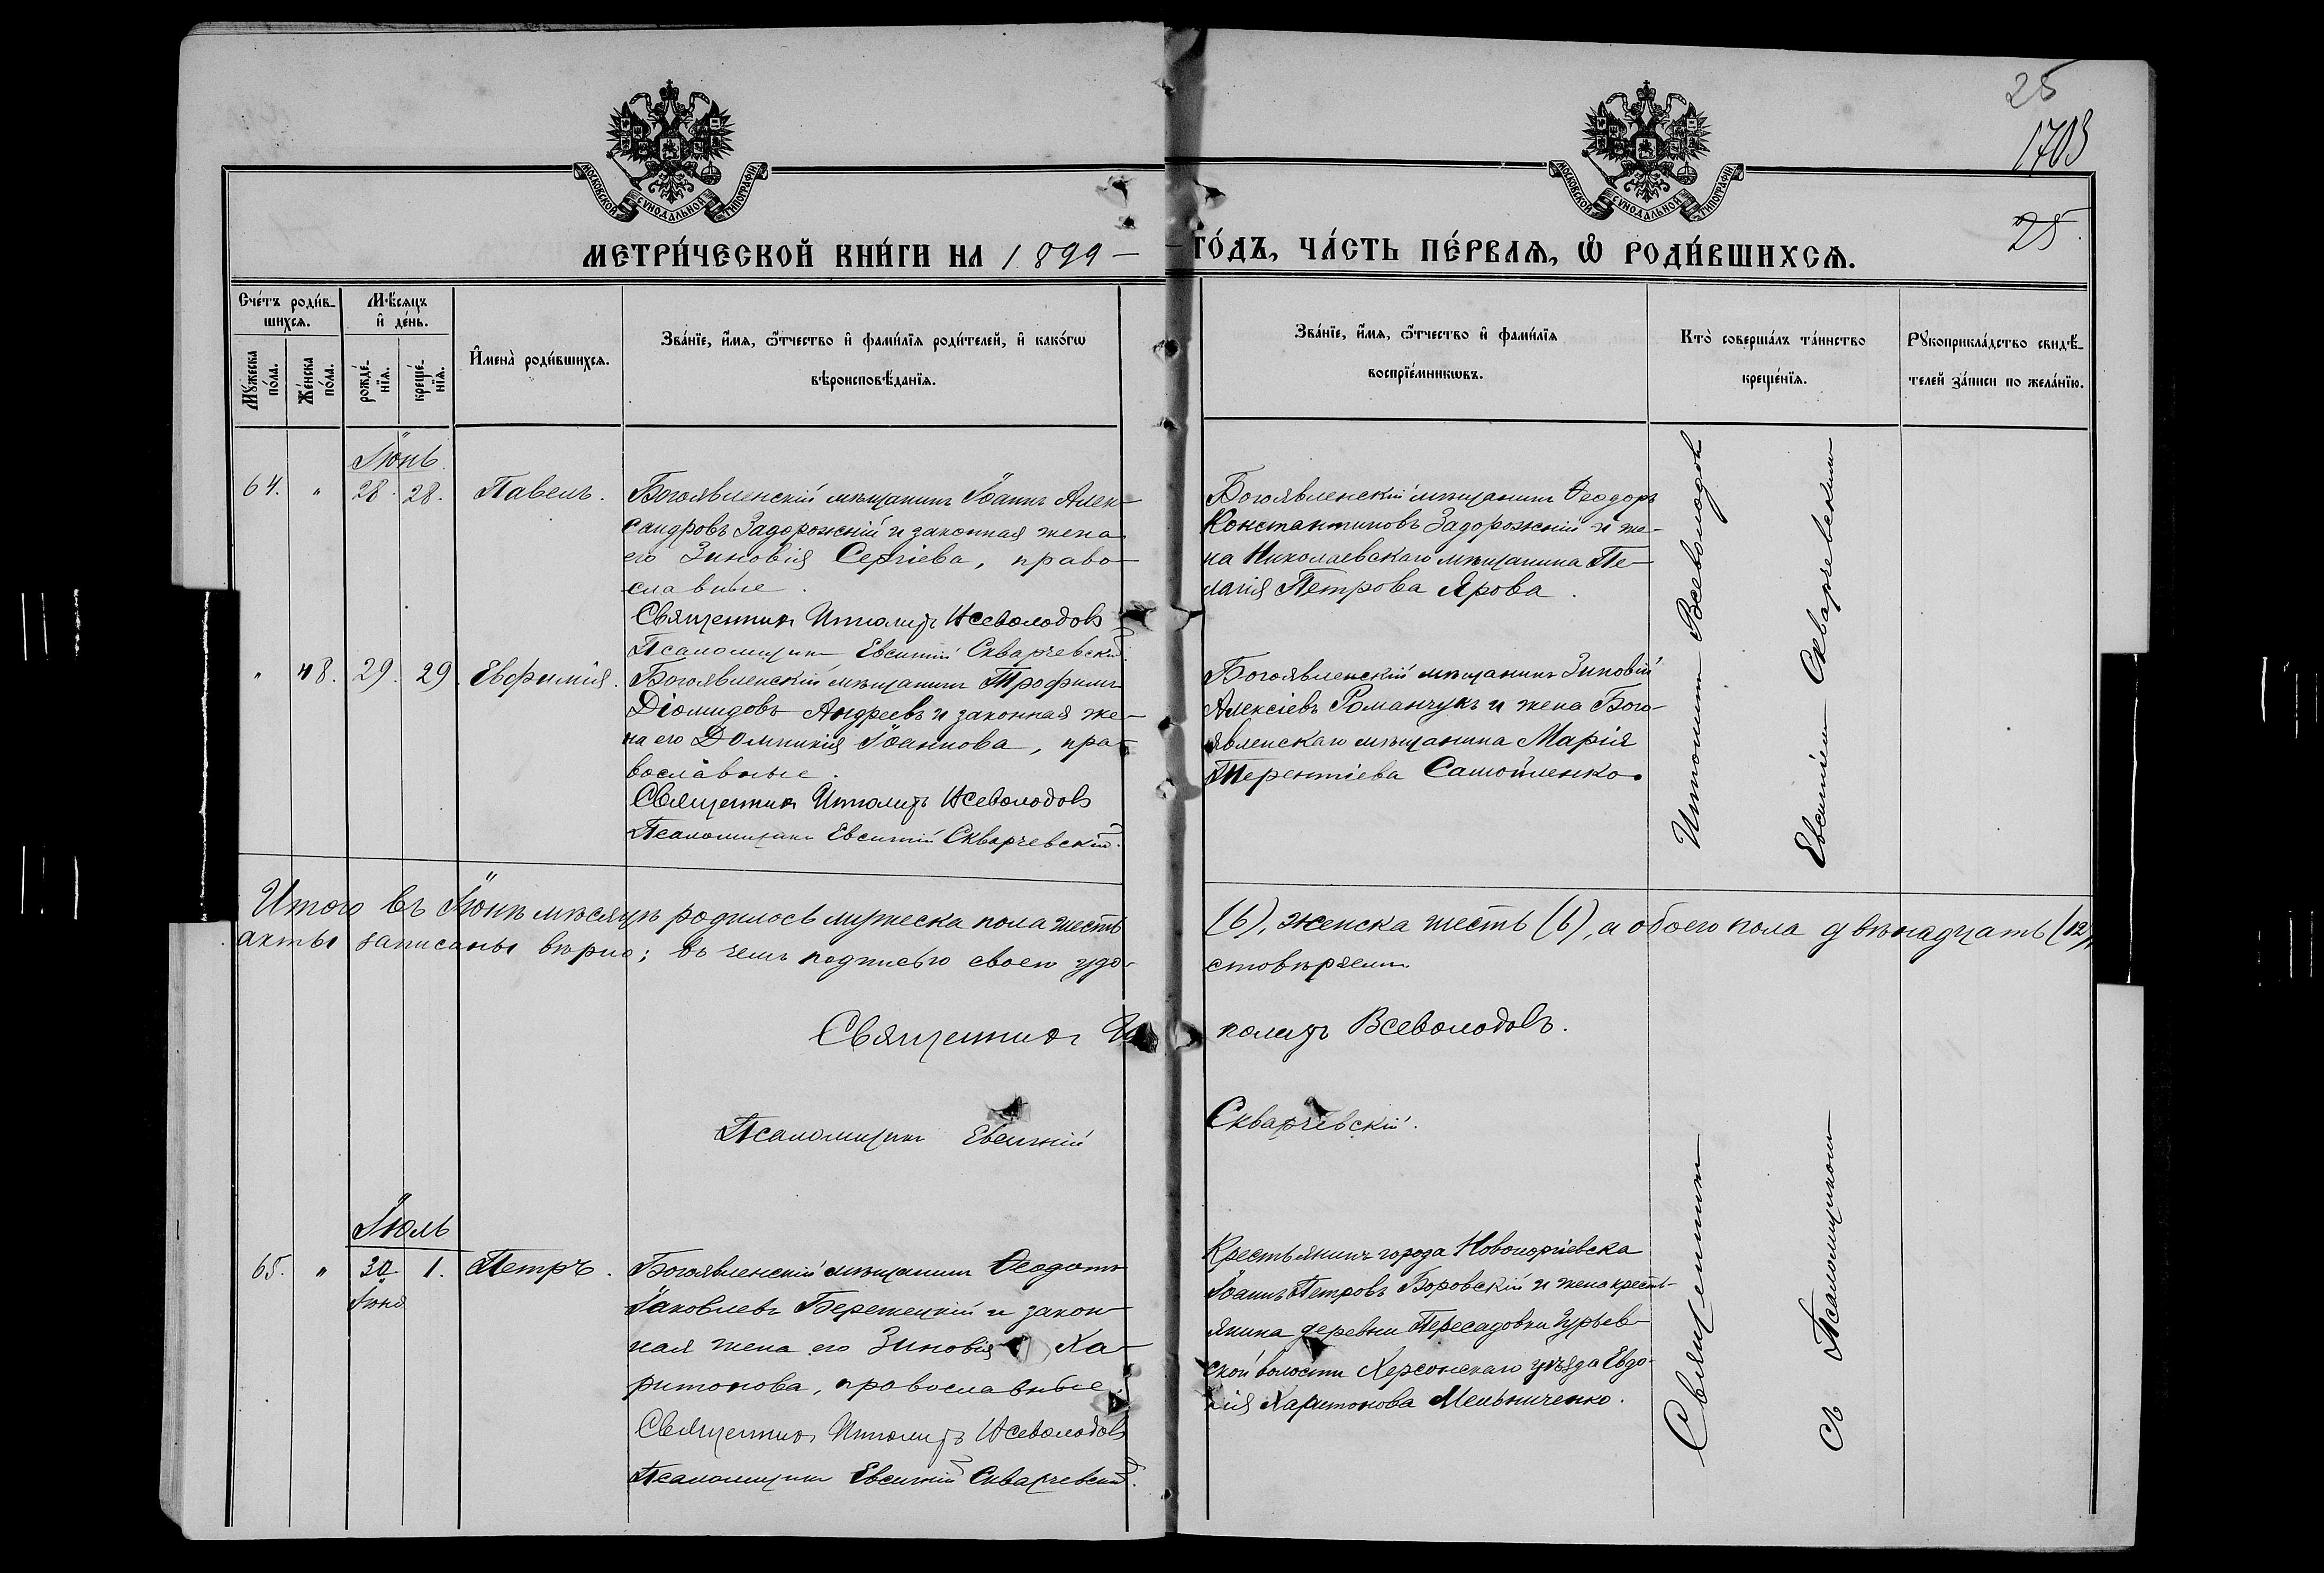 25
1703
25
МОСКОВСКОЙ СѴНОДАЛЬНОЙ ТИПОГРАФІИ
МОСКОВСКОЙ СѴНОДАЛЬНОЙ ТИПОГРАФІИ
МЕТРИ́ЧЕСКОЙ КНИ́ГИ НА 1899 — ГО́ДЪ, ЧА́СТЬ ПЕ́РВАЯ, Ѡ РОДИ́ВШИХСЯ.
Сче́тъ роди́в-
шихся.
Мꙋжеска по́ла.
Же́нска по́ла.
Мѣ́сяцъ
и де́нь.
рожде́-
нїя.
креще́-
нїя.
Имена̀ роди́вшихся.
Зва́нїе, и́мя, ѻ́тчество и фами́лїя роди́телей, и како́гѡ
вѣроисповѣ́данїя.
Зва́нїе, и́мя, ѻ́тчество и фами́лїя
воспрїе́мникѡвъ.
Кто̀ соверша́лъ та́инство
креще́нїя.
Рꙋкоприкла́дство свидѣ́-
телей за́писи по жела́нїю.
Іюнь
64. " 28. 28. Павелъ.
Богоявленскій мѣщанинъ Іоаннъ Алек-
сандровъ Задорожній и законная жена
его Зиновія Сергіева, право-
славные.
Священникъ Ипполитъ Всеволодовъ
Псаломщикъ Евсигній Скварчевскій.
Богоявленскій мѣщанинъ Ѳеодоръ
Константиновъ Задорожній и же-
на Николаевскаго мѣщанина Пе-
лагія Петрова Ярова.
" 48. 29. 29. Евфимія.
Богоявленскій мѣщанинъ Трофимъ
Діомидовъ Андреевъ и законная же-
на его Домникія Іоаннова, пра-
вославные.
Священникъ Ипполитъ Всеволодовъ
Псаломщикъ Евсигній Скварчевскій.
Богоявленскій мѣщанинъ Зиновій
Алексіевъ Романчукъ и жена Бого-
явленскаго мѣщанина Марія
Терентіева Самойленко.
Ипполитъ Всеволодовъ
Евсигніемъ Скварчевскимъ
Итого въ Іюнѣ мѣсяцѣ родилось мужеска пола шесть (6), женска шесть (6), а обоего пола двѣнадцать (12),
акты записаны вѣрно; въ чемъ подписью своею удо-стовѣряемъ
Священникъ Ипполитъ Всеволодовъ.
Псаломщикъ Евсигній Скварчевскій.
Іюль
65. " 30 1. Петръ.
Іюня
Богоявленскій мѣщанинъ Ѳеодотъ
Іаковлевъ Бережецкій и закон-
ная жена его Зиновія Ха-
ритонова, православные.
Священникъ Ипполитъ Всеволодовъ
Псаломщикъ Евсигній Скварчевскій.
Крестьянинъ города Новогоргіевска
Іоаннъ Петровъ Боровскій и жена кресть-
янина деревни Пересадовки Гурьев-
ской волости Херсонскаго уѣзда Евдо-
кія Харитонова Мельниченко.
Священникъ
съ Псаломщикомъ